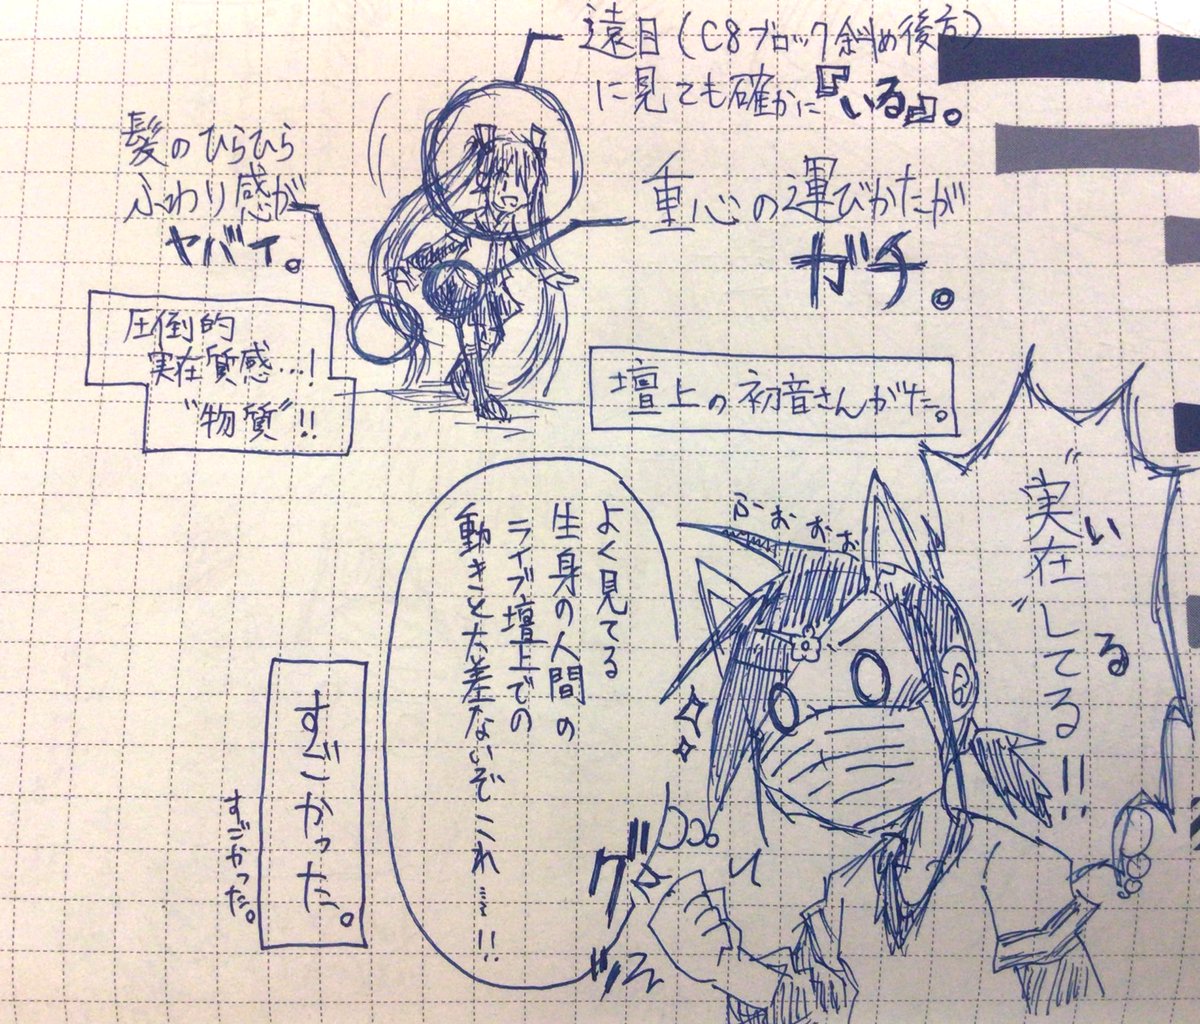 遠目(C8ブロック斜め後方)
に見ても確かに『いる』。
髪のひらひら
ふわり感が
ヤバイ。
重心の運びかたが
ガチ。
圧倒的
実在質感…!
"物質"!!
壇上の初音さんがた。
"実在"してる!!
いる
ふーぉぉぉ
よく見てる
生身の人間の
ライブ壇上での
動きと大差ないぞこれ……!!
グッ
すごかった。
すごかった。